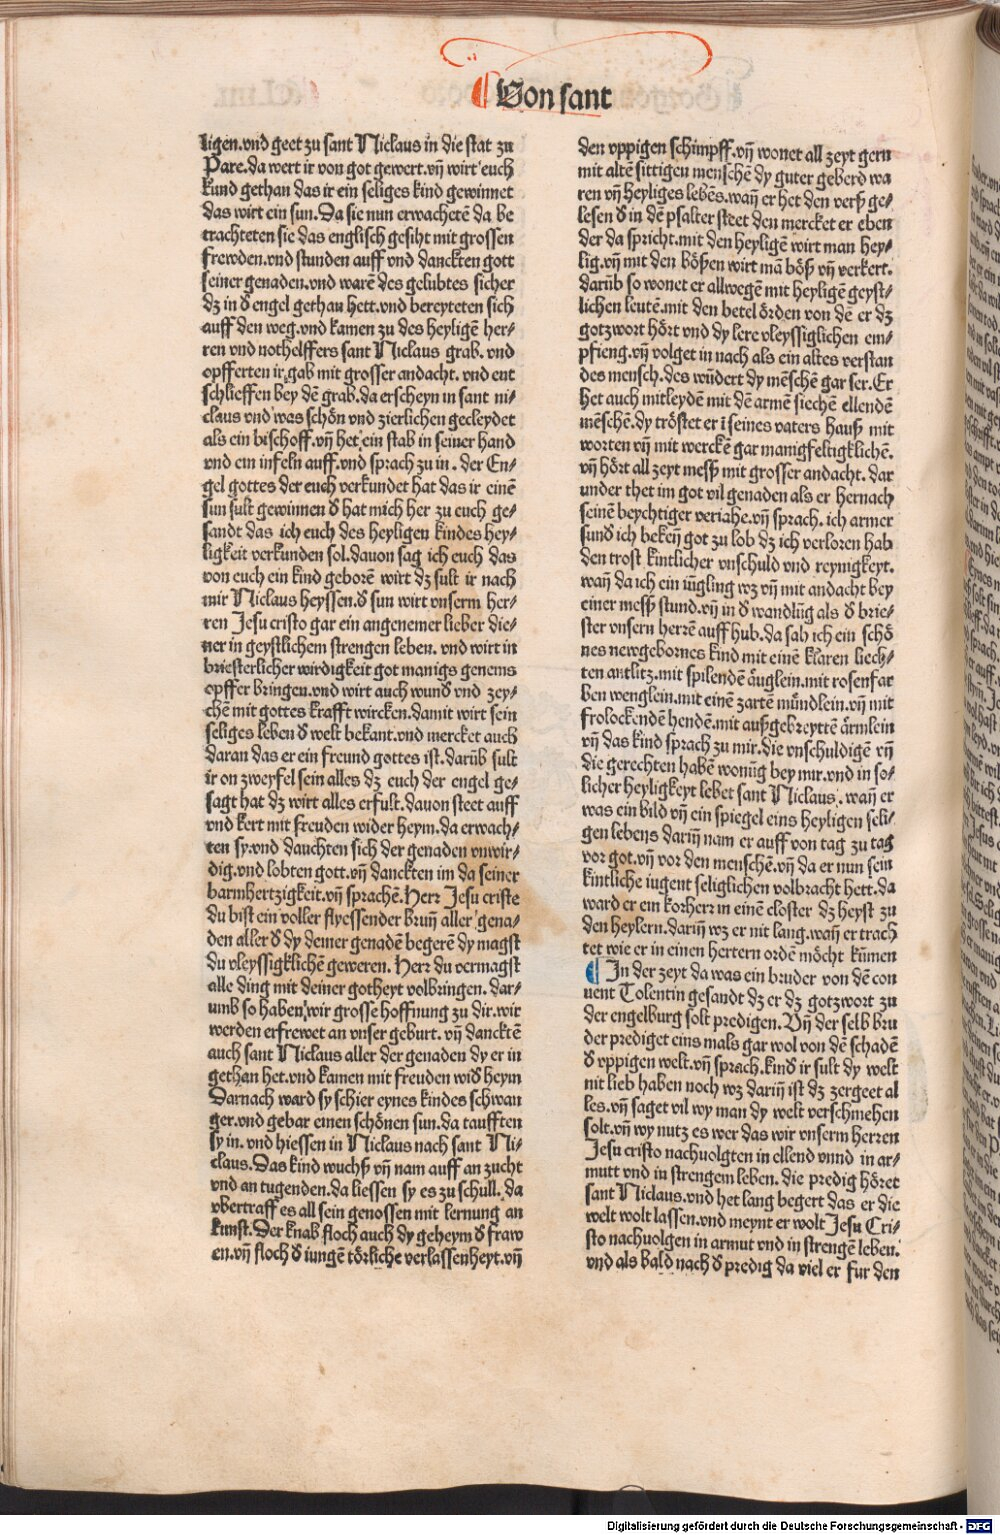 Von sant
ligen.vnd geet zu sant Niclaus in die stat zu
Pare.da wert ir von got gewert.vñ wirt euch
kund gethan das ir ein seliges kind gewinnet
das wirt ein sun.Da sie nun erwachetē da be
trachteten sie das englisch gesiht mit grossen
frewden.vnd stunden auff vnd danckten gott
seiner genaden.vnd warē des gelubtes sicher
dz in d̕ engel gethan hett.vnd bereyteten sich
auff den weg.vnd kamen zu des heyligē her⸗
ren vnd nothelffers sant Niclaus grab. vnd
opfferten ir gab mit grosser andacht. vnd ent
schlieffen bey dē grab.da erscheyn in sant ni⸗
claus vnd was schön vnd zierlichen gecleydet
als ein bischoff.vñ het ein stab in seiner hand
vnd ein infeln auff.vnd sprach zu in. der En⸗
gel gottes der euch verkundet hat das ir einē
sun sult gewinnen d̕ hat mich her zu euch ge⸗
sandt das ich euch des heyligen kindes hey⸗
ligkeit verkunden sol.dauon sag ich euch das
von euch ein kind geborē wirt dz sult ir nach
mir Niclaus heyssen.d̕ sun wirt vnserm her⸗
ren Jesu cristo gar ein angenemer lieber die⸗
ner in geystlichem strengen leben. vnd wirt in
briesterlicher wirdigkeit got manigs genems
opffer bringen.vnd wirt auch wund̕ vnd zey⸗
chē mit gottes krafft wircken.damit wirt sein
seliges leben d̕ welt bekant.vnd mercket auch
daran das er ein freund gottes ist.darūb sult
ir on zweyfel sein alles dz euch der engel ge⸗
sagt hat dz wirt alles erfult.dauon steet auff
vnd kert mit freuden wider heym.da erwach⸗
ten sy.vnd dauchten sich der genaden vnwir⸗
dig.vnd lobten gott.vñ danckten im da seiner
barmhertzigkeit.vñ sprachē.Herr Jesu criste
du bist ein voller flyessender bruñ aller gena⸗
den aller d̕ dy deiner genadē begerē dy magst
du vleyssigklichē geweren. Herr du vermagst
alle ding mit deiner gotheyt volbringen. dar⸗
umb so haben wir grosse hoffnung zu dir.wir
werden erfrewet an vnser geburt. vñ dancktē
auch sant Niclaus aller der genaden dy er in
gethan het.vnd kamen mit freuden wid̕ heym
Darnach ward sy schier eynes kindes schwan
ger.vnd gebar einen schönen sun.da taufften
sy in. vnd hiessen in Niclaus nach sant Ni⸗
claus.Das kind wuchß vñ nam auff an zucht
vnd an tugenden.da liessen sy es zu schull. da
vbertraff es all sein genossen mit lernung an
kunst.Der knab floch auch dy geheym d̕ fraw
en.vñ floch d̕ iungē törliche verlassenheyt.vñ
den vppigen schimpff.vñ wonet all zeyt gern
mit altē sittigen menschē dy guter geberd wa
ren vñ heyliges lebēs.wañ er het den verß ge⸗
lesen d̕ in dē psalter steet den mercket er eben
der da spricht.mit den heyligē wirt man hey⸗
lig.vñ mit den bößen wirt mā böß vñ verkert.
darūb so wonet er allwegē mit heyligē geyst⸗
lichen leutē.mit den betel örden von dē er dz
gotzwort hört vnd dy lere vleyssiglichen em⸗
pfieng.vñ volget in nach als ein altes verstan
des mensch.des wūdert dy mēschē gar ser.Er
het auch mitleydē mit dē armē siechē ellendē
mēschē.dy tröstet er ī seines vaters hauß mit
worten vñ mit werckē gar manigfeltigklichē.
vñ hört all zeyt messß mit grosser andacht. dar
under thet im got vil genaden als er hernach
seinē beychtiger veriahe.vñ sprach. ich armer
sund̕ ich bekeñ got zu lob dz ich verloren hab
den trost kintlicher vnschuld vnd reynigkeyt.
wañ da ich ein iūgling wz vñ mit andacht bey
einer messß stund.vñ in d̕ wandlūg als d̕ brie⸗
ster vnsern herrē auff hub.da sah ich ein schö
nes newgebornes kind mit einē klaren liech⸗
ten antlitz.mit spilendē äuglein.mit rosenfar
ben wenglein.mit einē zartē mündlein.vñ mit
frolockendē hendē.mit außgebreyttē ärmlein
vñ das kind sprach zu mir.die vnschuldigē vñ
die gerechten habē wonūg bey mir.vnd in so⸗
licher heyligkeyt lebet sant Niclaus. wañ er
was ein bild vñ ein spiegel eins heyligen seli⸗
gen lebens dariñ nam er auff von tag zu tag
vor got.vñ vor den menschē.vñ da er nun sein
kintliche iugent seliglichen volbracht hett.da
ward er ein korherr in einē closter dz heyst zu
den heylern.dariñ wz er nit lang.wañ er trach
tet wie er in einen hertern ordē möcht kūmen
In der zeyt da was ein bruder von dē con
uent Tolentin gesandt dz er dz gotzwort zu
der engelburg solt predigen. Vñ der selb bru
der prediget eins mals gar wol von dē schadē
d̕ vppigen welt.vñ sprach.kind̕ ir sult dy welt
nit lieb haben noch wz dariñ ist dz zergeet al
les.vñ saget vil wy man dy welt verschmehen
solt.vñ wy nutz es wer das wir vnserm herren
Jesu cristo nachuolgten in ellend vnnd in ar⸗
mutt vnd in strengem leben. die predig höret
sant Niclaus.vnd het lang begert das er die
welt wolt lassen.vnd meynt er wolt Jesu Cri⸗
sto nachuolgen in armut vnd in strengē leben.
vnd als bald nach d̕ predig da viel er fur den
Digitalisierung gefördert durch die Deutsche Forschungsgemeinschaft - DFG